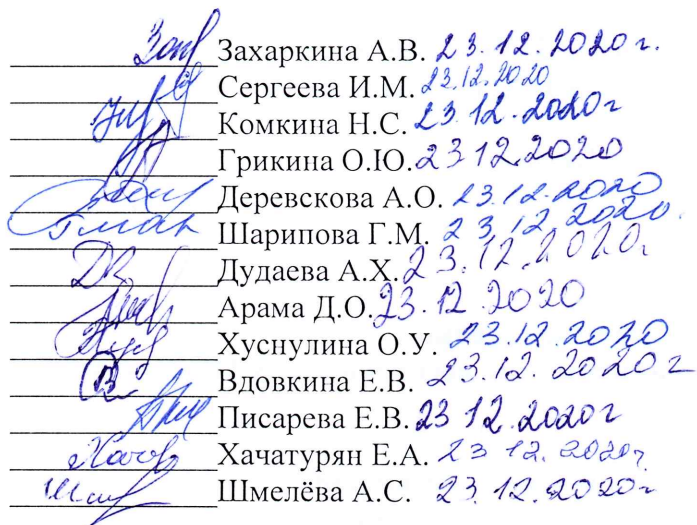 Захаркина А.В. 23.12.2020 г.
Сергеева И.М. 23.12.2020
Комкина Н.С. 23.12.2020г
Грикина О.Ю. 23 12.2020
Деревскова А.О. 23.12.2020
Шарипова Г.М. 23.12.2020.
Дудаева А.Х. 23.12.2020г
Арама Д.О. 23.12.2020
Хуснулина О.У. 23.12.2020
Вдовкина Е.В. 23.12.2020 г
Писарева Е.В. 23 12.2020г
Хачатурян Е.А. 23 12. 2020г
Шмелёва А.С. 23.12.2020г